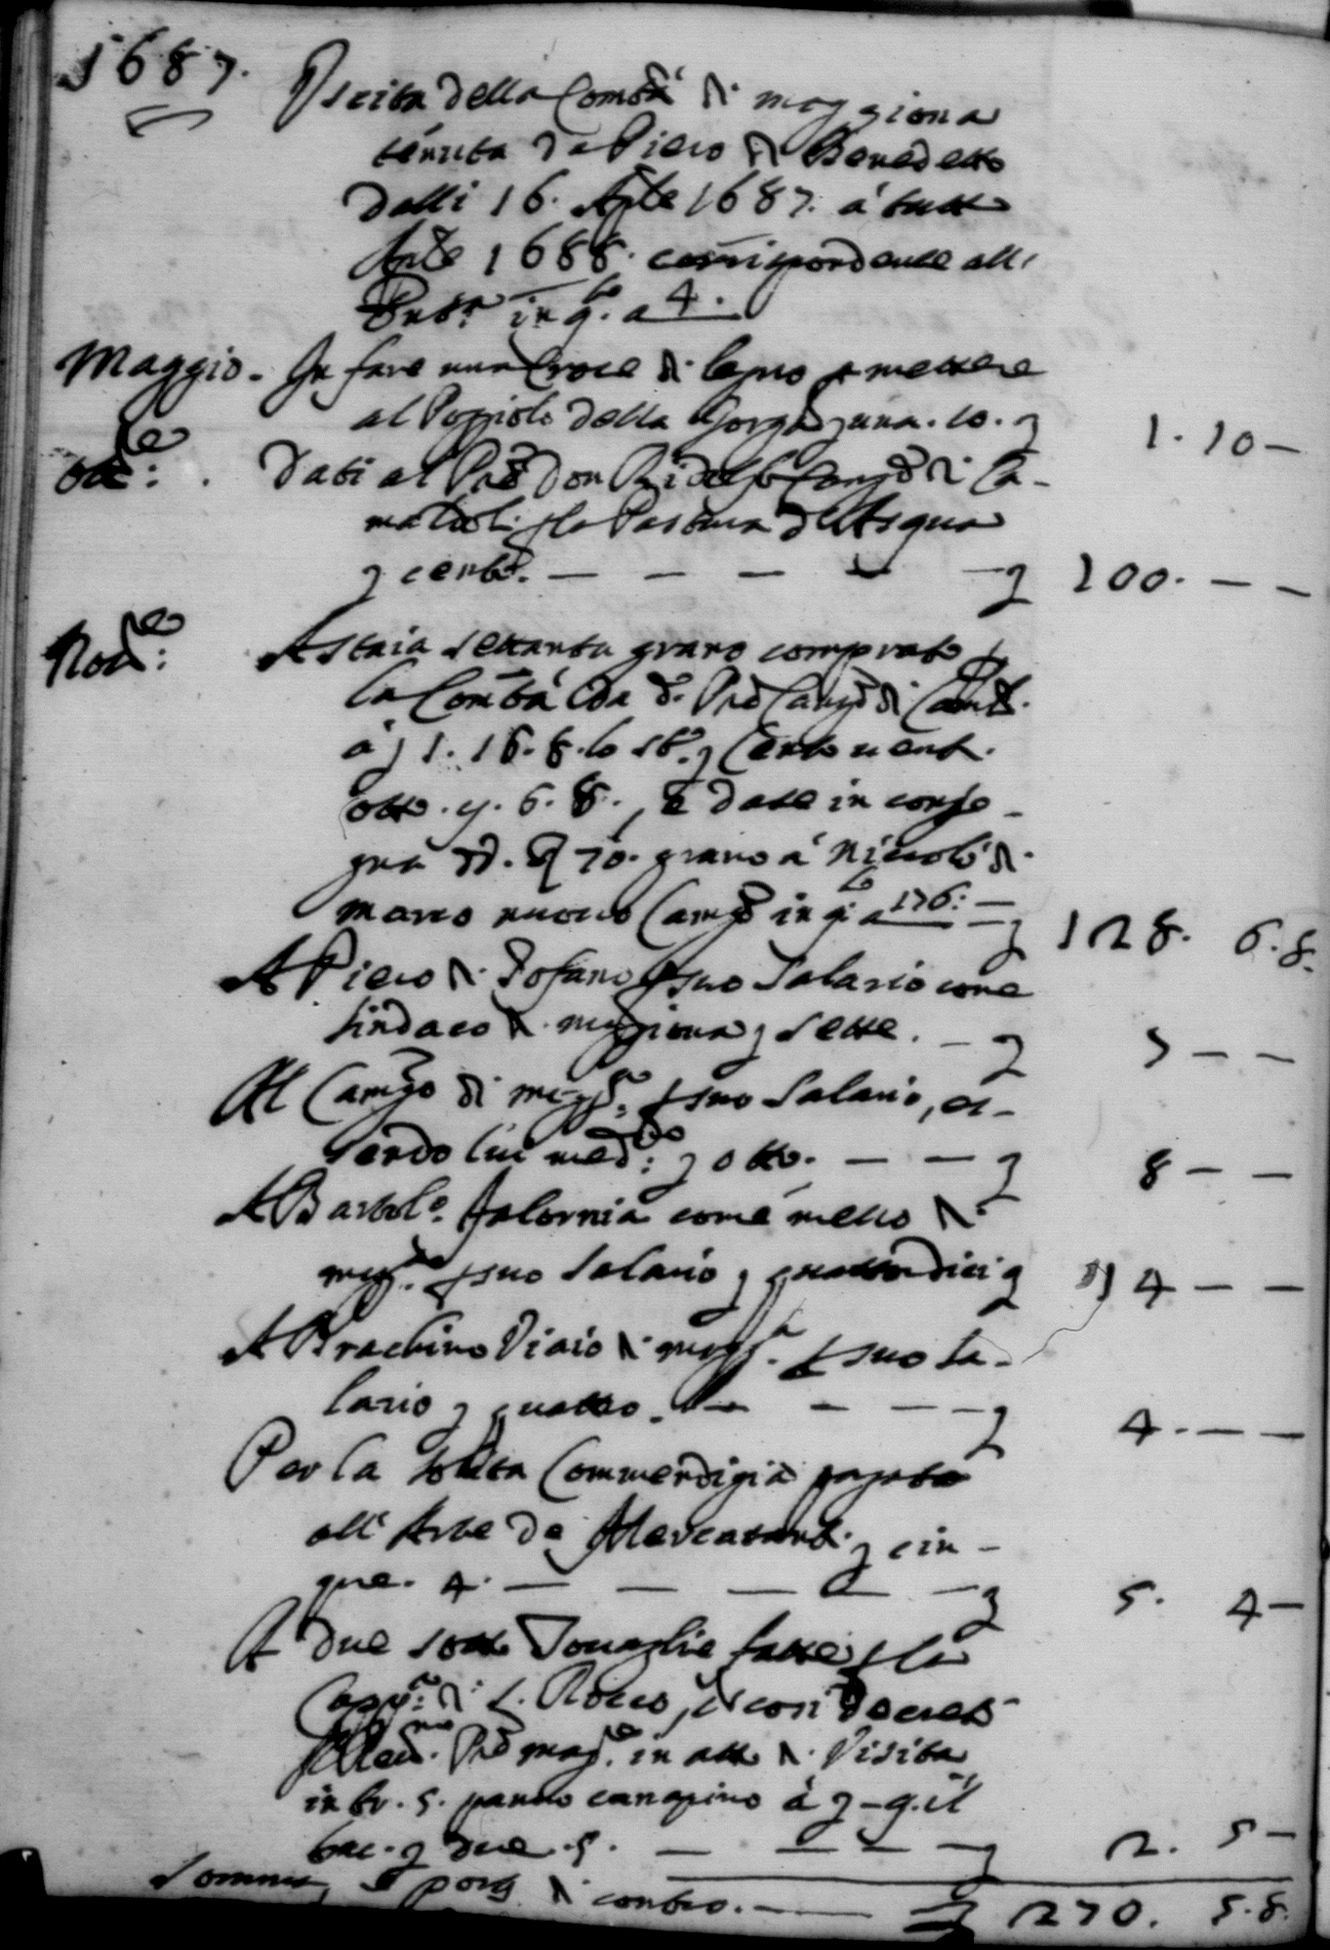 1687.
Uscita della Com.tà di moggiona
tenuta da Piero di Benedetto
dalli 16. Aple 1687. á tutto
Aple 1688. corrispondente all'
Entr.a in q.to a 4.
Maggio. In fare una Croce di legno p mettere
al Poggiolo della una. 10. 1. 10 —
Ott.e: Dati al Prē Don Ridolfo Camg.o di Ca-
maldoli p la Pastura dell'Asqua
cento. — — — — 100. — —
Nov.e: A Staia settanta grano comprato p
la Com.tà da d.o Prē Camg.o di Camd.
á 1. 16. 8. lo st.o Cento vent'
otto. y. 6. 8., e dato in conse-
gna dd. St 70. grano á Niccolò di
marco nuovo Camg.o in q.to a 176: — 128. 6. 8.
A Piero di Tofano p suo Salario come
sindaco di moggiona sette. — 7 — —
Al Camg.o di mogg.a p suo Salario, es-
sendo lui med.mo: otto. — — 8 — —
A Bartol.o Falornia come messo di
mogg.a p suo Salario quattordici 14 — —
A Brachino Viaio di mogg.a p suo sa-
lario quattro. — — — 4. — —
Per la solita Commendigia pagata
all'Arte de Mercatanti cin-
que. 4. — — — — — 5. 4 —
A due sotto Tovaglie fatte p la
Capp.a di S. Rocco, e così decreto
Prē magg.e in atto di Visita
in br. 5. panno canapino á — 9. il
brac. due. 5. — — — 2. 5 —
Somma, e porg di contro. — 270. 5. 8.